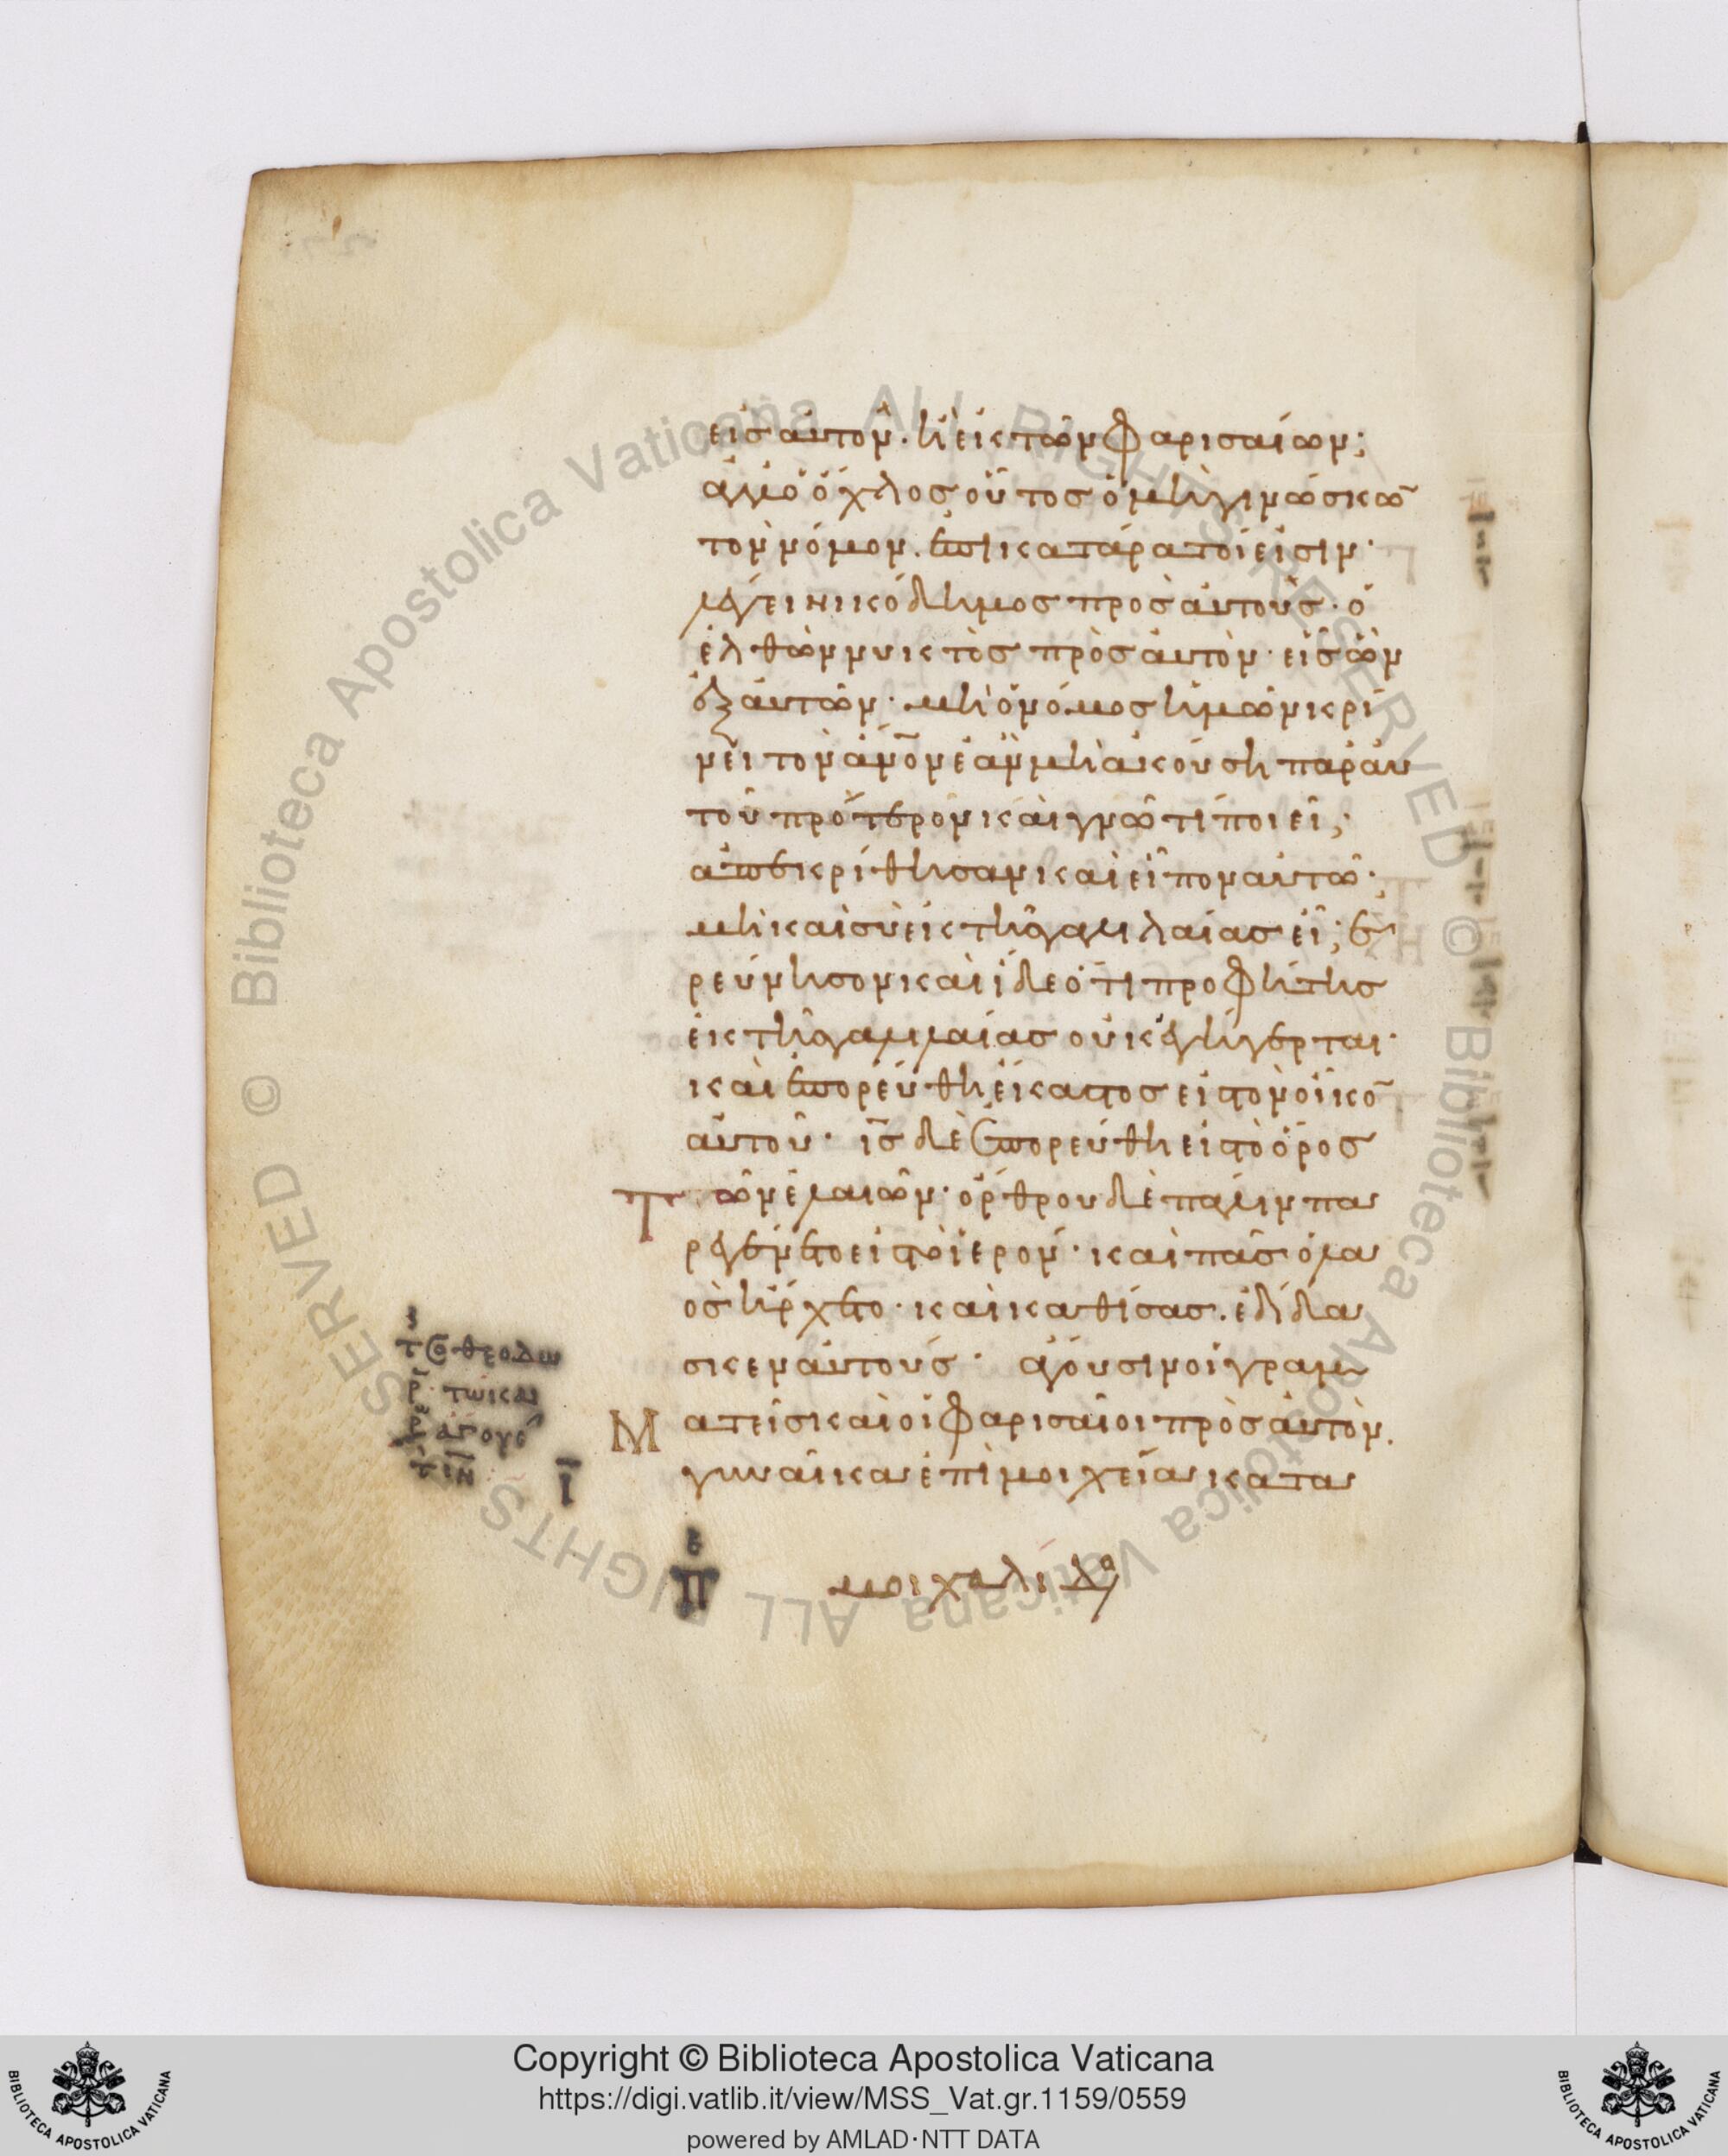 εις αυτον· ἢ ἐκ τῶν Φαρισαίων;
ἀλλ' ὁ ὄχλος οὗτος ὁ μὴ γινώσκω̅
τὸν νόμον. ἐπικατάρατοί εἰσιν·
λέγει Νικόδημος πρὸς αὐτούς· ὁ
ἐλθὼν νυκτὸς πρὸς αὐτὸν· εἷς ὢν
ἐξ αὐτῶν· μὴ ὁ νόμος ἡμῶν κρί
νει τὸν ἀν̅ον ἐὰν μὴ ἀκούσῃ παρ' αυ
τοῦ πρότερον καὶ γνῶ τί ποιεῖ;·
ἀπεκρίθησαν καὶ εἶπον αὐτῶ·
μὴ καὶ σὺ ἐκ τῆς γαλιλαίας εἶ; ἐ
ρεύνησον καὶ ἴδε ὅτι προφήτης
ἐκ τῆς γαλιλαίας οὐκ ἐγήγερται·
καὶ ἐπορεύθη ἕκαστος εἰς τὸν οἶκο̅
αὐτοῦ· ι̅ς̅ δὲ ἐπορεύθη εἰς τὸ ὄρος
Τῶν ἐλαιῶν· ὄρθρου δὲ πάλιν πα
ρεγένετο εἰς τὸ ἱερόν· καὶ πᾶς ὁ λα
ὸς ἤρχετο· καὶ καθίσας. ἐδίδα
σκεν αὐτούς· ἄγουσιν οἱ γραμ
Ματεῖς καὶ οἱ Φαρισαῖοι πρὸς αὐτὸν.
γυναῖκα ἐπὶ μοιχεία κατα
Ι̅
μοιχαλίδα
Copyright © Biblioteca Apostolica Vaticana
https://digi.vatlib.it/view/MSS_Vat.gr.1159/0559
powered by AMLAD·NTT DATA
BIBLIOTECA APOSTOLICA VATICANA
BIBLIOTECA APOSTOLICA VATICANA